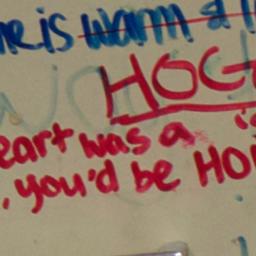 he is warm a
HOG
eart was a
, you'd be HO